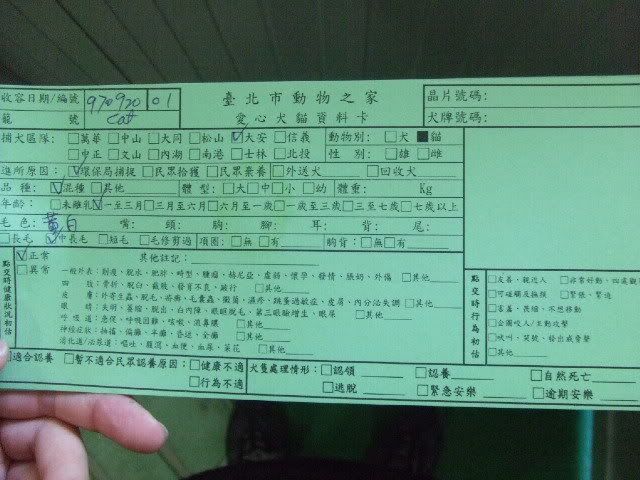 臺北市動物之家
愛心犬貓資料卡
收容日期/編號 970920 01
籠 號 Cat
晶片號碼:
犬牌號碼:
捕犬區隊: □萬華 □中山 □大同 □松山 ☑大安 □信義 動物別: □犬 ■貓
□中正 □文山 □內湖 □南港 □士林 □北投 性 別: □雄 □雌
進所原因: ☑環保局捕捉 □民眾拾獲 □民眾棄養 □外送犬 □回收犬
品 種: ☑混種 □其他 體 型: □大 □中 □小 □幼 體重: Kg
年齡: □未離乳 ☑一至三月 □三月至六月 □六月至一歲 □一歲至三歲 □三至七歲 □七歲以上
毛 色: 黃白 嘴: 頭: 腳: 耳: 背: 尾:
□長毛 ☑中長毛 □短毛 □毛修剪過 項圈: □無 □有 胸背: □無 □有
點交時健康狀況初估
☑正常
□異常
其他註記:
一般外表: 削瘦、脫水、肥胖、畸型、腫瘤、赫尼亞、虛弱、懷孕、發情、脹奶、外傷 □其他
四 肢: 骨折、脫臼、截肢、發育不良、跛行 □其他
皮 膚: 外寄生蟲、脫毛、疥癬、毛囊蟲、黴菌、濕疹、跳蚤過敏症、皮屑、內分泌失調 □其他
眼 睛: 失明、萎縮、脫出、白內障、眼瞼脫毛、第三眼瞼增生、眼屎 □其他
呼 吸 道: 急促、呼吸困難、咳嗽、流鼻膿 □其他
神經症狀: 抽搐、偏癱、半癱、昏迷、全癱 □其他
消化道/泌尿道: 嘔吐、腹瀉、血便、血尿、菜花 □其他
點交時行為初估
□友善、親近人 □非常好動、四處觀
□可碰觸及撫摸 □緊張、緊迫
□害羞、畏縮、不想移動
□企圖咬人/主動攻擊
□吠叫、哭號、發出威脅聲
□其他
適合認養 □暫不適合民眾認養原因: □健康不適 犬隻處理情形: □認領 □認養 □自然死亡
□行為不適 □逃脫 □緊急安樂 □逾期安樂